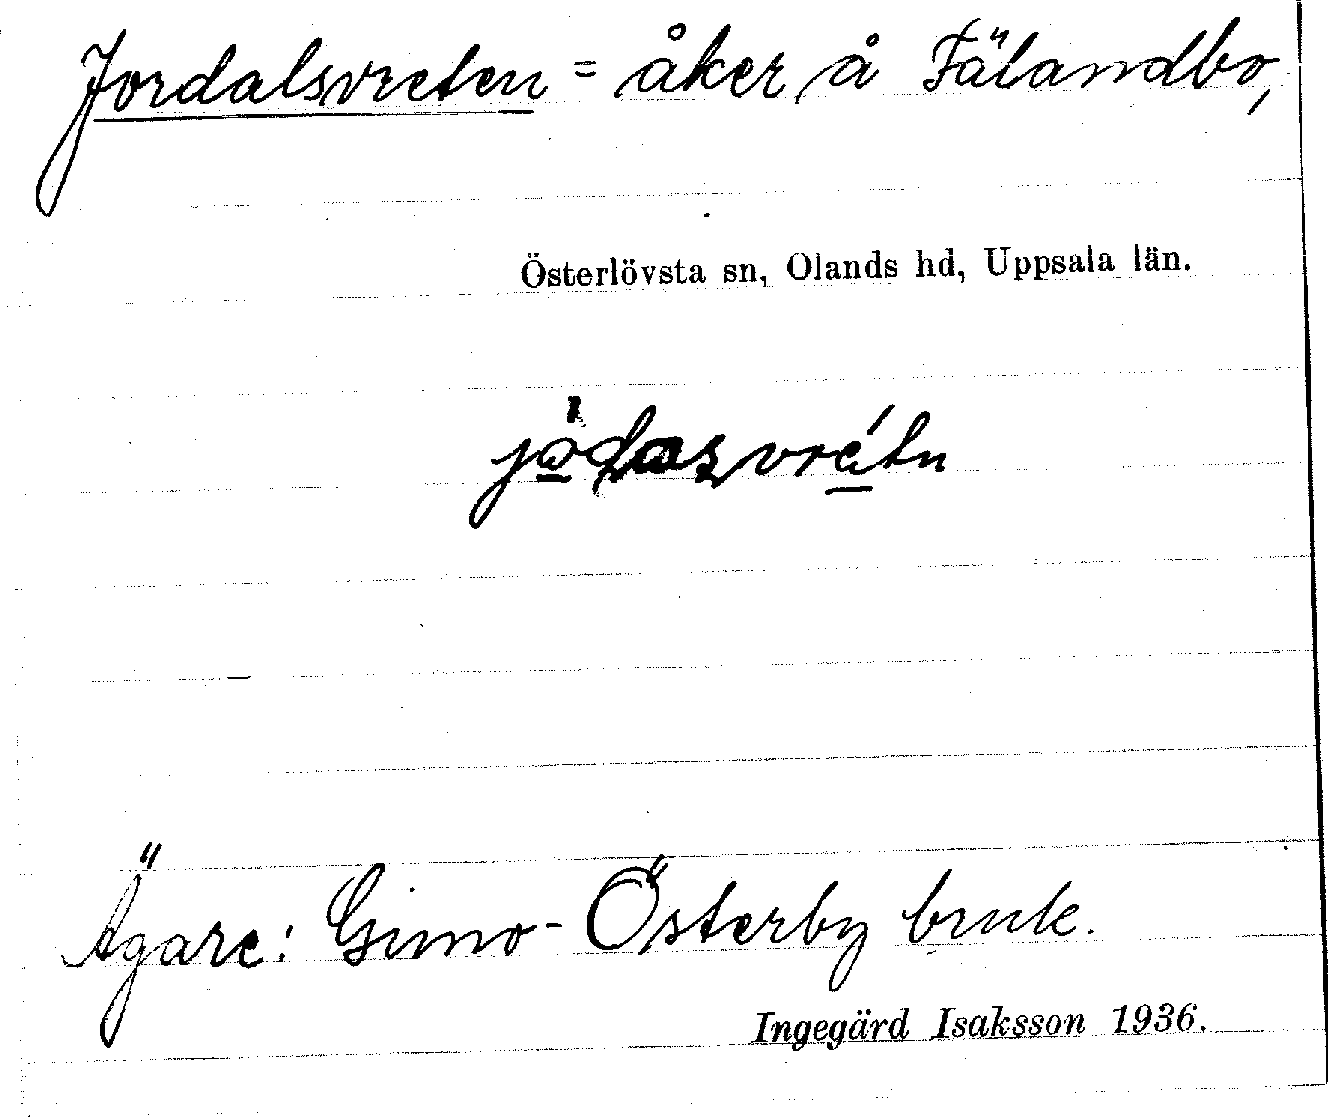 Jordalsvreten = åker å Fälandbo,
Österlövsta sn, Olands hd, Uppsala län.
Ägare: Gimo-Österby bruk.
Ingegärd Isaksson 1936.